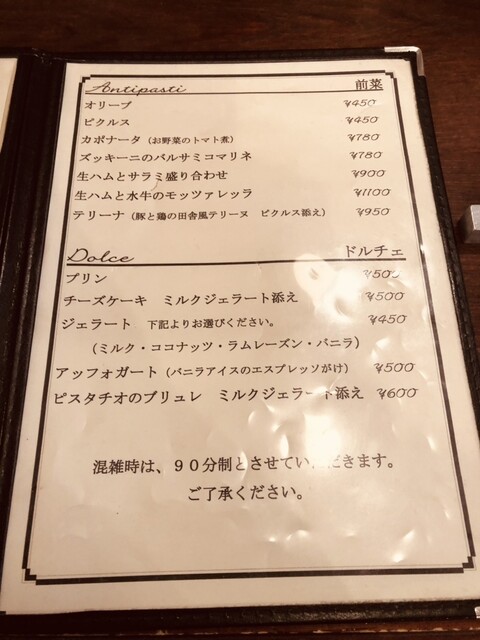 Antipasti 前菜
オリーブ ¥450
ピクルス ¥450
カポナータ（お野菜のトマト煮） ¥780
ズッキーニのバルサミコマリネ ¥780
生ハムとサラミ盛り合わせ ¥900
生ハムと水牛のモッツァレッラ ¥1100
テリーナ（豚と鶏の田舎風テリーヌ ピクルス添え） ¥950
Dolce ドルチェ
プリン ¥500
チーズケーキ ミルクジェラート添え ¥500
ジェラート 下記よりお選びください。 ¥450
（ミルク・ココナッツ・ラムレーズン・バニラ）
アッフォガート（バニラアイスのエスプレッソがけ） ¥500
ピスタチオのブリュレ ミルクジェラート添え ¥600
混雑時は、９０分制とさせていただきます。
ご了承ください。